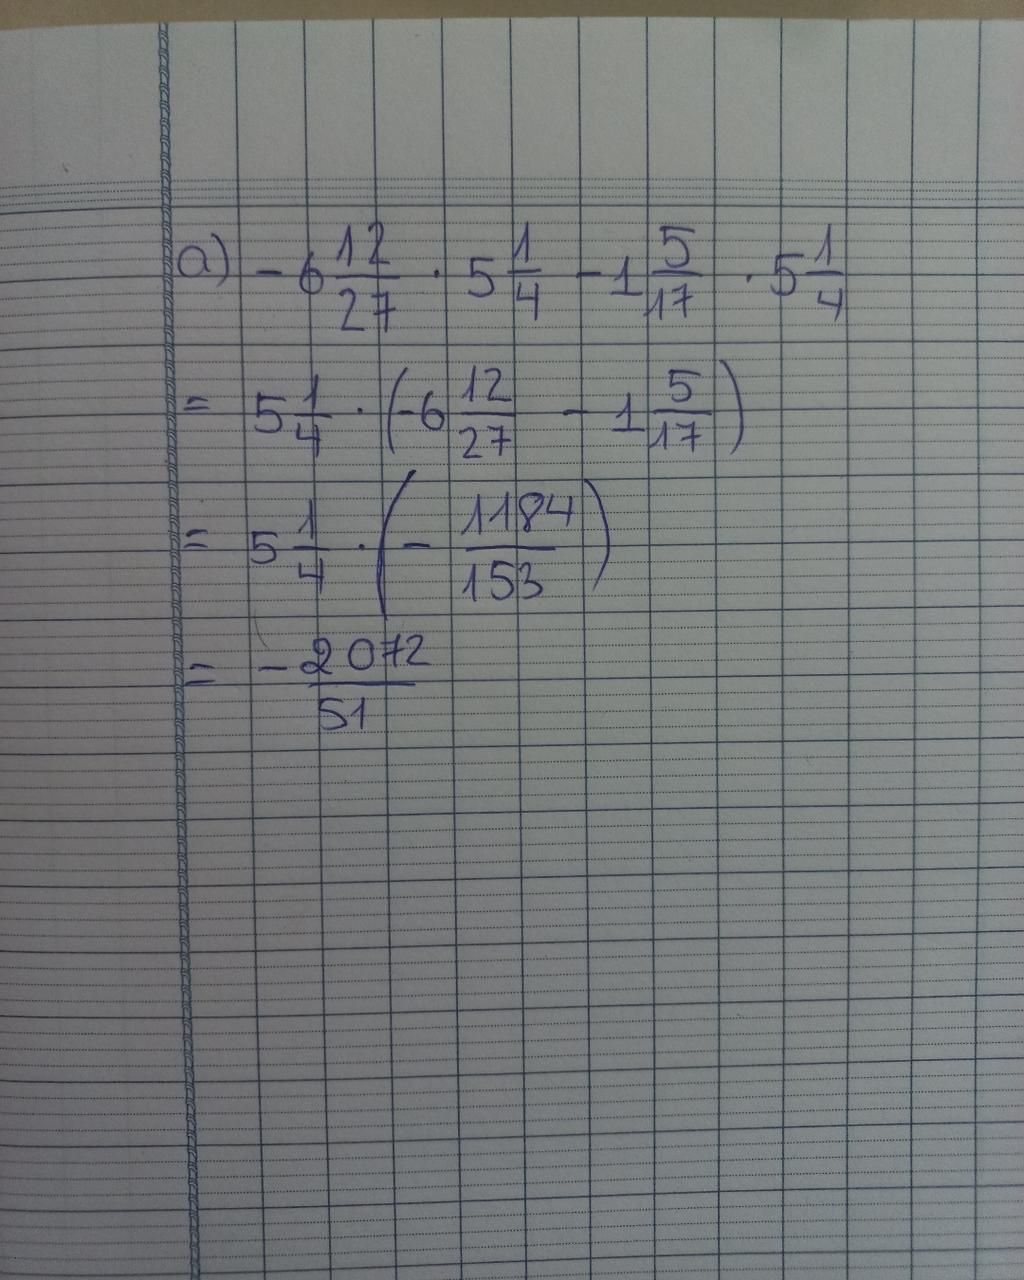 a) -6 12/27 · 5 1/4 - 1 5/17 · 5 1/4
= 5 1/4 · (-6 12/27 - 1 5/17)
= 5 1/4 · (- 1184/153)
= - 2072/51